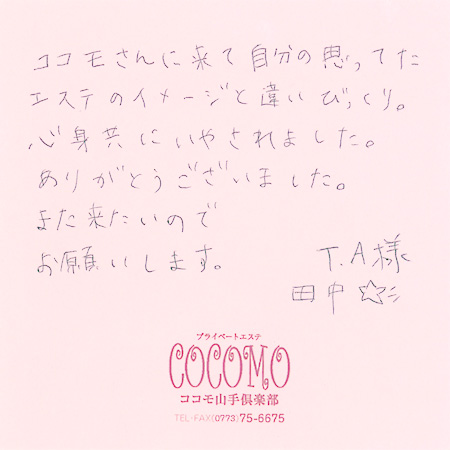 ココモさんに来て自分の思ってた
エステのイメージと違いびっくり。
心身共にいやされました。
ありがとうございました。
また来たいので
お願いします。
T.A様
田中☆
プライベートエステ
COCOMO
ココモ山手倶楽部
TEL・FAX(0773)75-6675